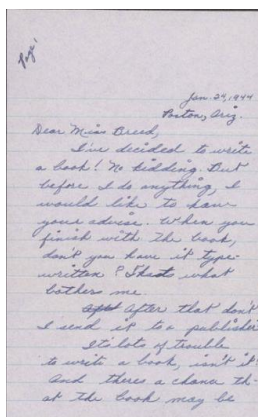 Page 1
Jan. 24, 1944
Poston, Ariz.
Dear Miss Breed,
I've decided to write
a book! No kidding. But
before I do anything, I
would like to have
your advise. When you
finish with the book,
don't you have it type-
written? That what
bothers me.
After that don't
I send it to a publisher
Its lots of trouble
to write a book, isn't it?
And theres a chance th-
at the book may be